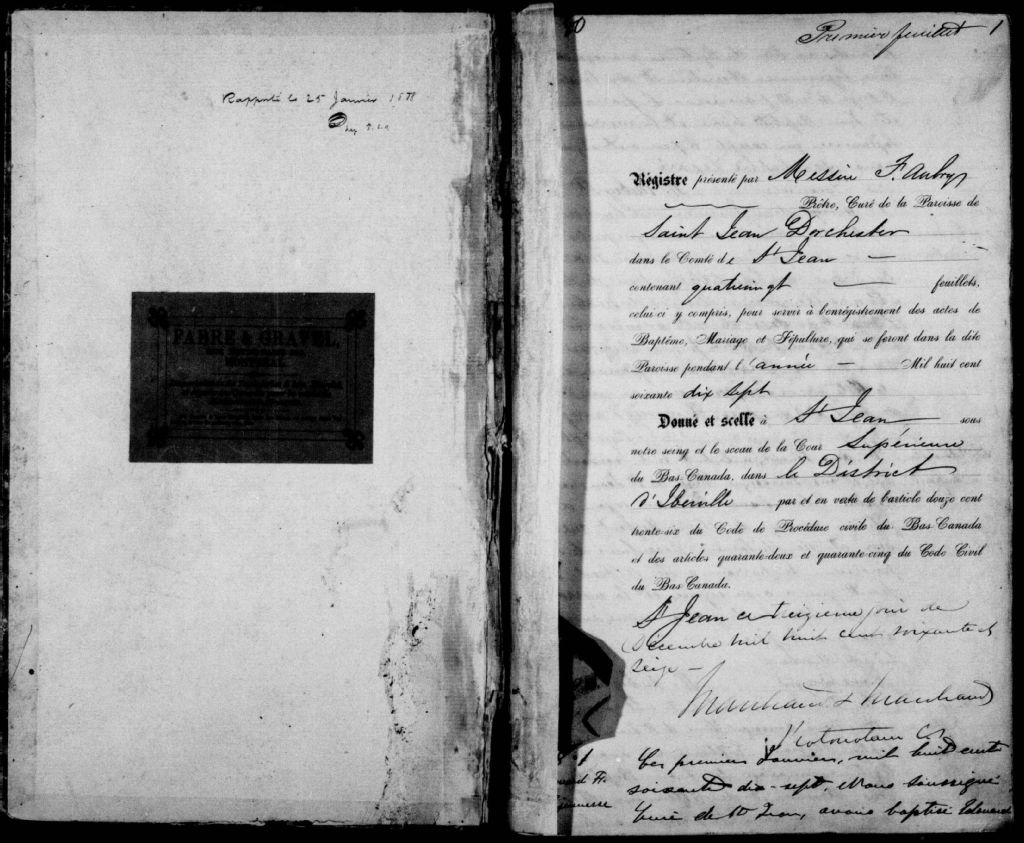 Rapporté le 25 Janvier 1878
FABRE & GRAVEL,
80
Premier feuillet 1
Régistre présenté par Messire F. Aubry
Prêtre, Curé de la Paroisse de
Saint Jean Dorchester
dans le Comté de St Jean
contenant quatrevingt feuillets,
celui-ci y compris, pour servir à l'enrégistrement des actes de
Baptême, Mariage et Sépulture, qui se feront dans la dite
Paroisse pendant l'année Mil huit cent
soixante dix sept
Donné et scellé à St Jean sous
notre seing et le sceau de la Cour Supérieure
du Bas-Canada, dans le District
d'Iberville par et en vertu de l'article douze cent
trente-six du Code de Procédure civile du Bas-Canada
et des articles quarante-deux et quarante-cinq du Code Civil
du Bas-Canada.
St Jean ce treizième jour de
Décembre mil huit cent soixante et
seize
Marchand & Marchand
Protonotaire C.S.
Ce premier Janvier, mil huit cent
soixante dix-sept, Nous soussigné
Curé de St Jean, avons baptisé Edouard